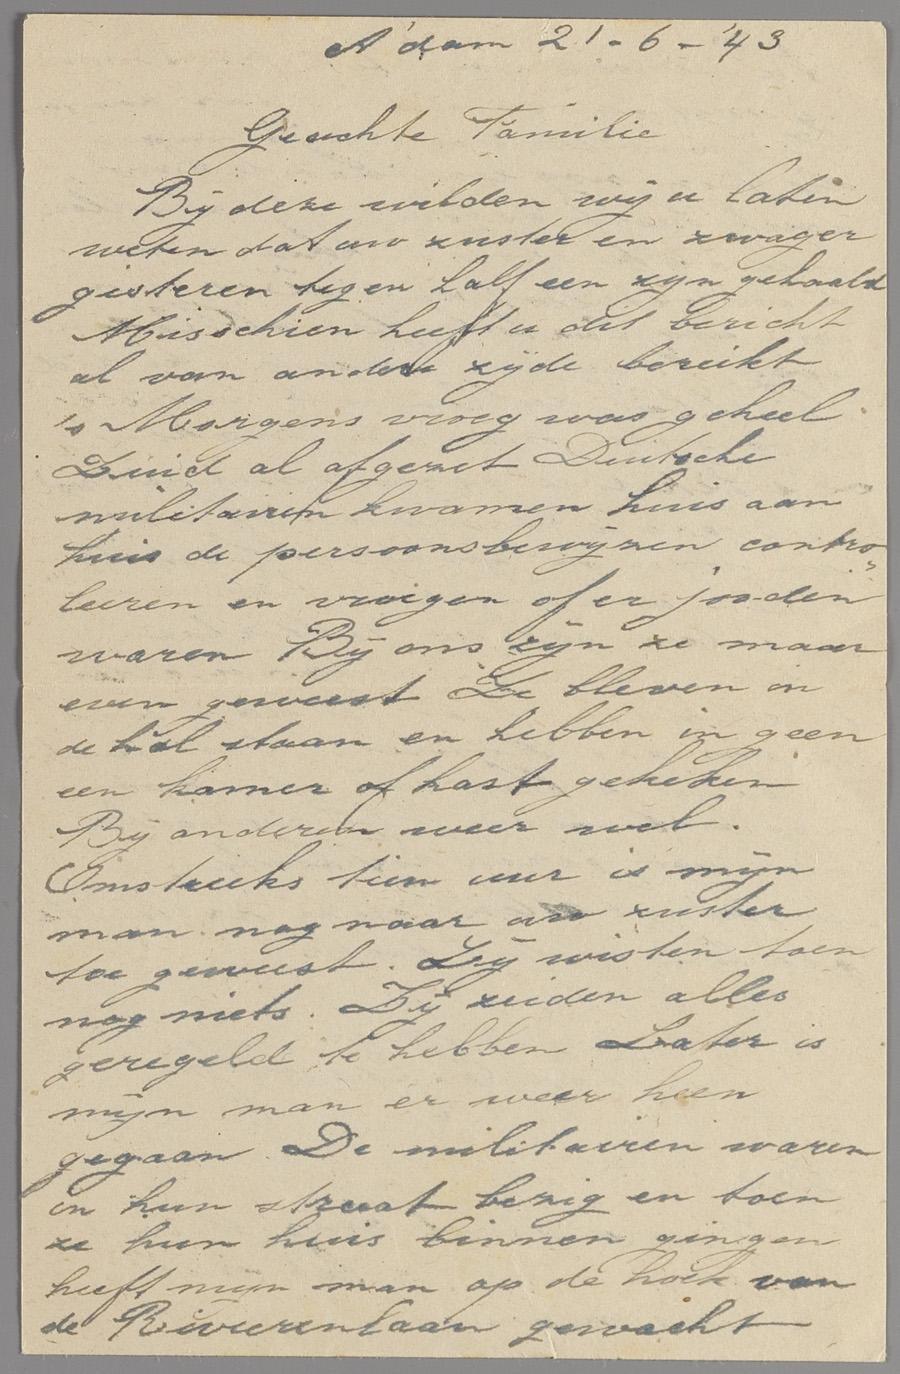 A'dam 21-6-'43
Geachte Familie
Bij deze wilden wij u laten
weten dat uw zuster en zwager
gisteren tegen half een zijn gehaald
Misschien heeft u dit bericht
al van andere zijde bereikt
's Morgens vroeg was geheel
Zuid al afgezet Duitsche
militairen kwamen huis aan
huis de persoonsbewijzen contro
leeren en vroegen of er "joden"
waren Bij ons zijn ze maar
even geweest Ze bleven in
de hal staan en hebben in geen
een kamer of kast gekeken
Bij anderen weer wel.
Omstreeks tien uur is mijn
man nog naar uw zuster
toe geweest. Zij wisten toen
nog niets. Zij zeiden alles
geregeld te hebben Later is
mijn man er weer heen
gegaan De militairen waren
in hun straat bezig en toen
ze hun huis binnen gingen
heeft mijn man op de hoek van
de Rivierenlaan gewacht